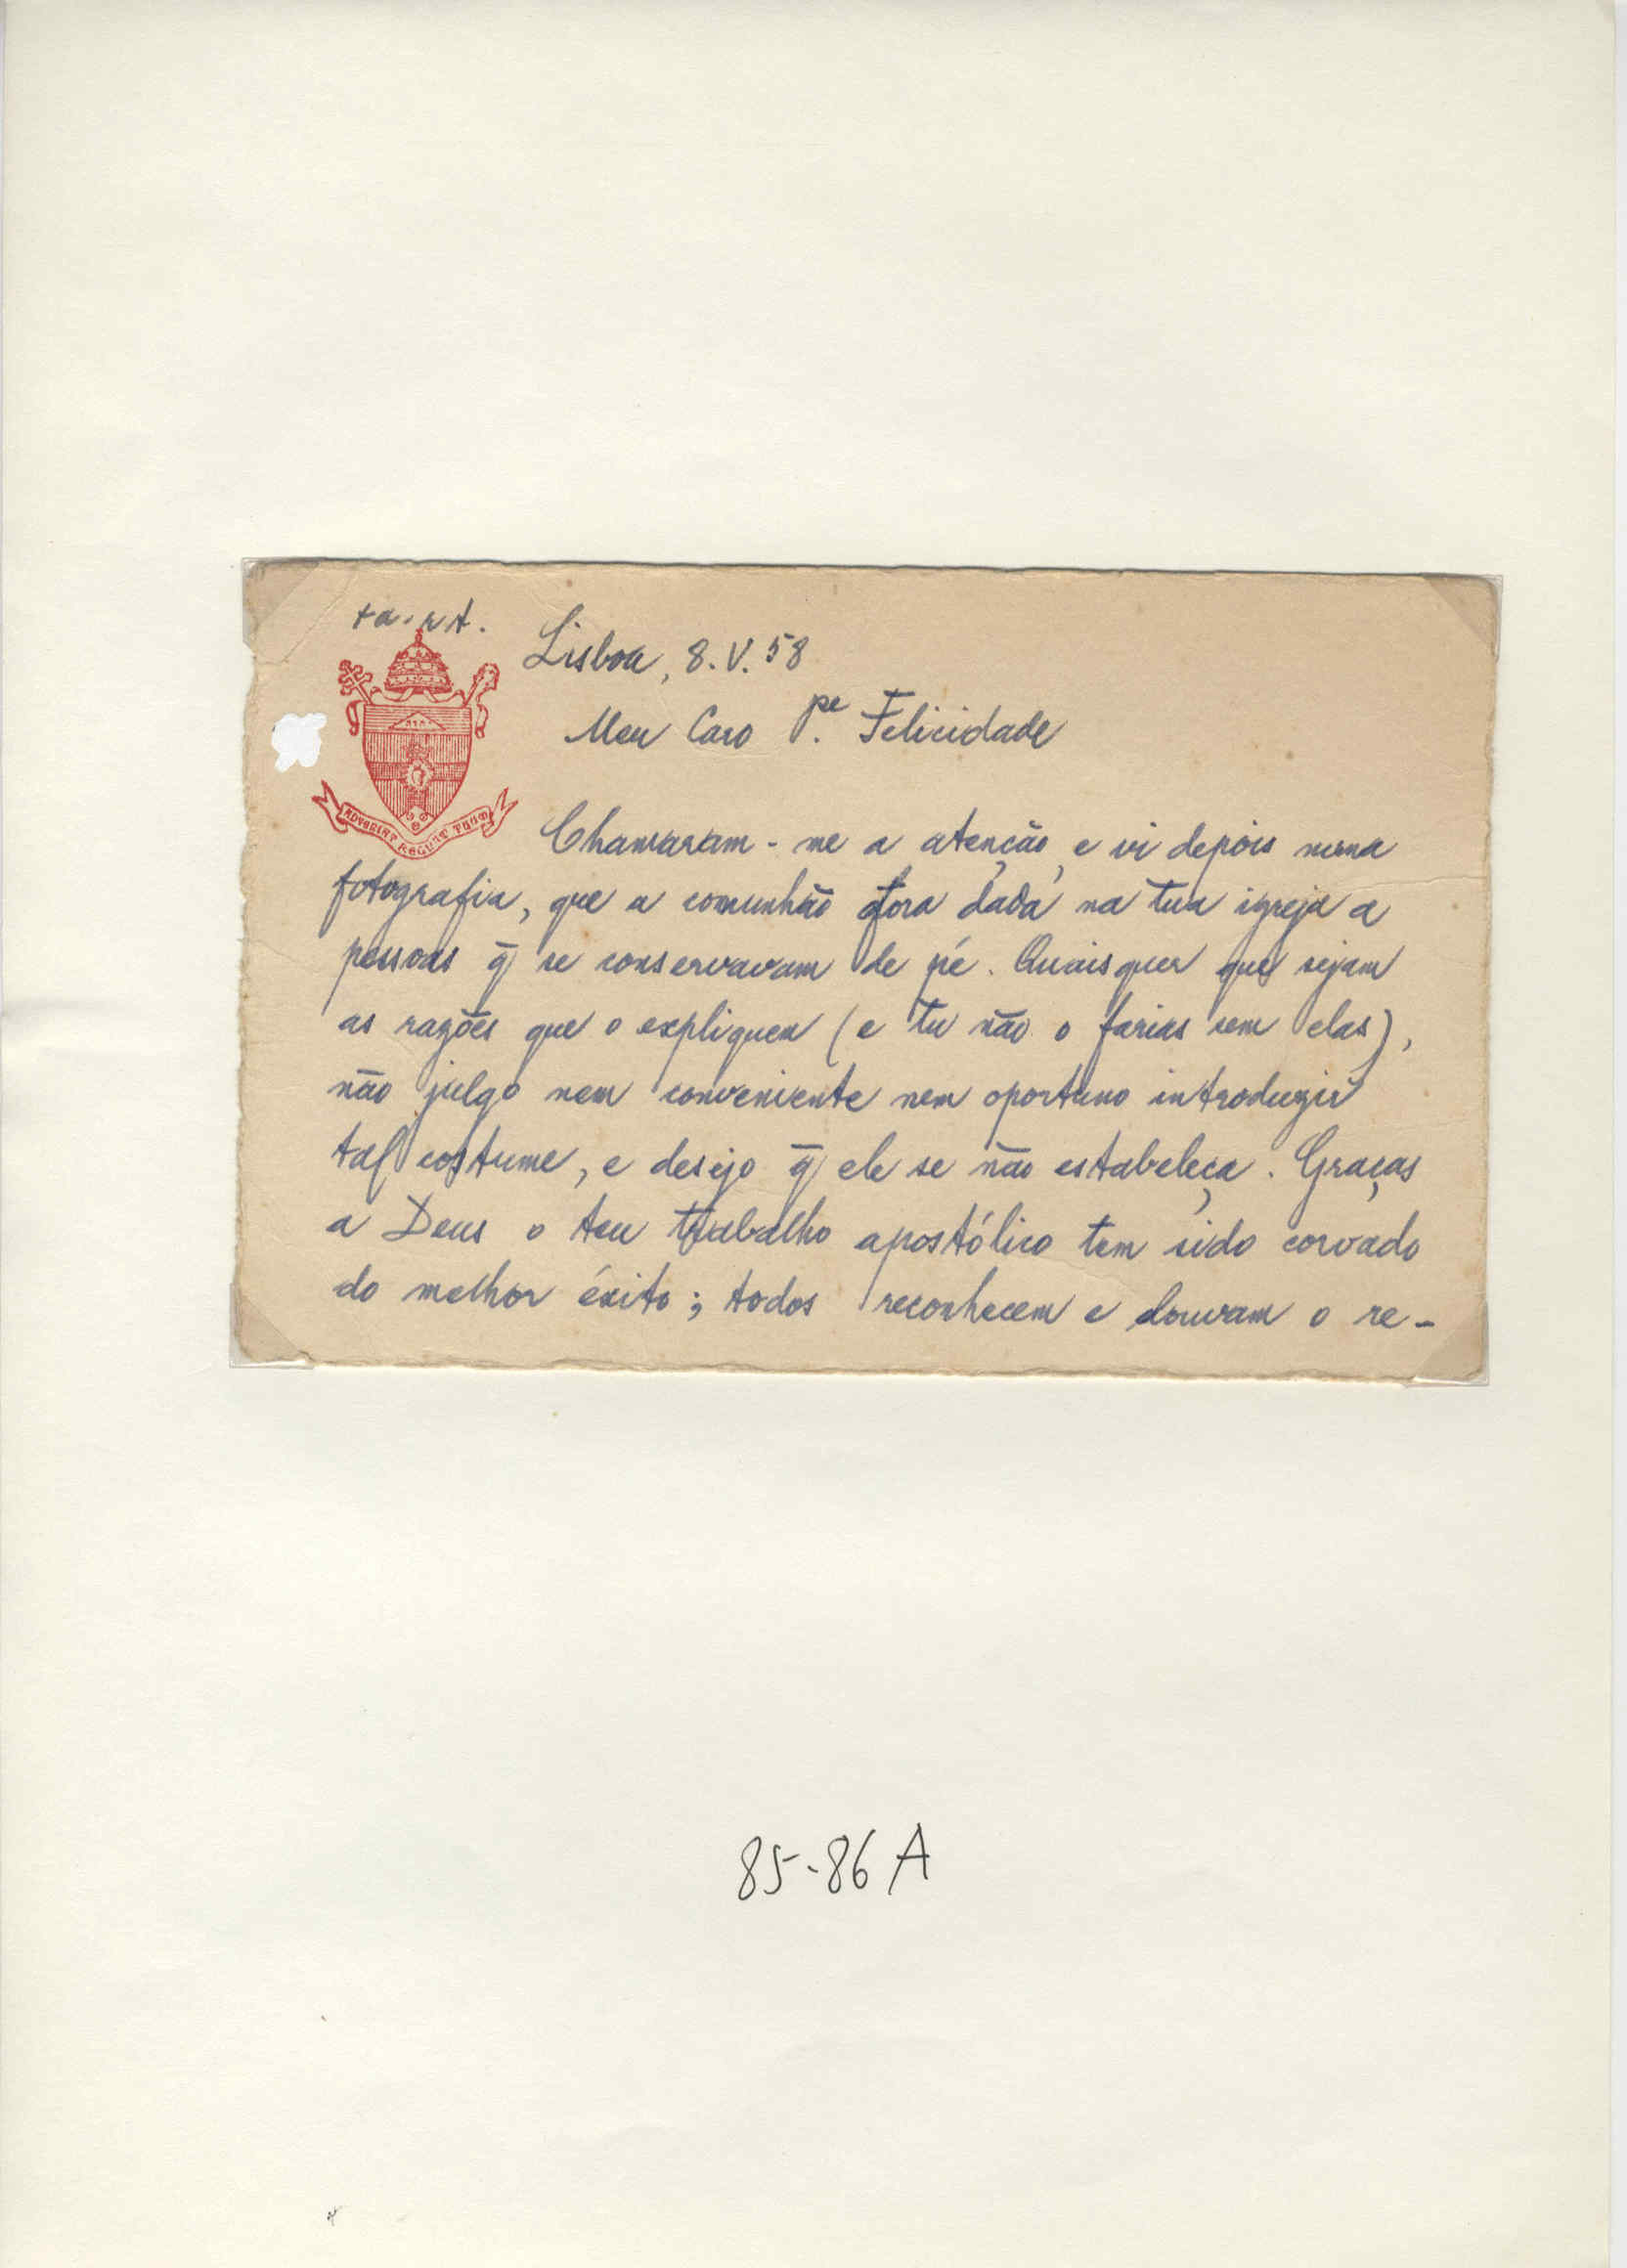 +a. r t.
Lisboa, 8.V.58
Meu Caro P.e Felicidade
ADVENIAT REGNUM TUUM
Chamaram-me a atenção, e vi depois numa
fotografia, que a comunhão fora dada na tua igreja a
pessoas q̄ se conservavam de pé. Quaisquer que sejam
as razões que o expliquem (e tu não o farias sem elas),
não julgo nem conveniente nem oportuno introduzir
tal costume, e desejo q̄ ele se não estabeleça. Graças
a Deus o teu trabalho apostólico tem sido coroado
do melhor éxito; todos reconhecem e louvam o re-
85-86 A